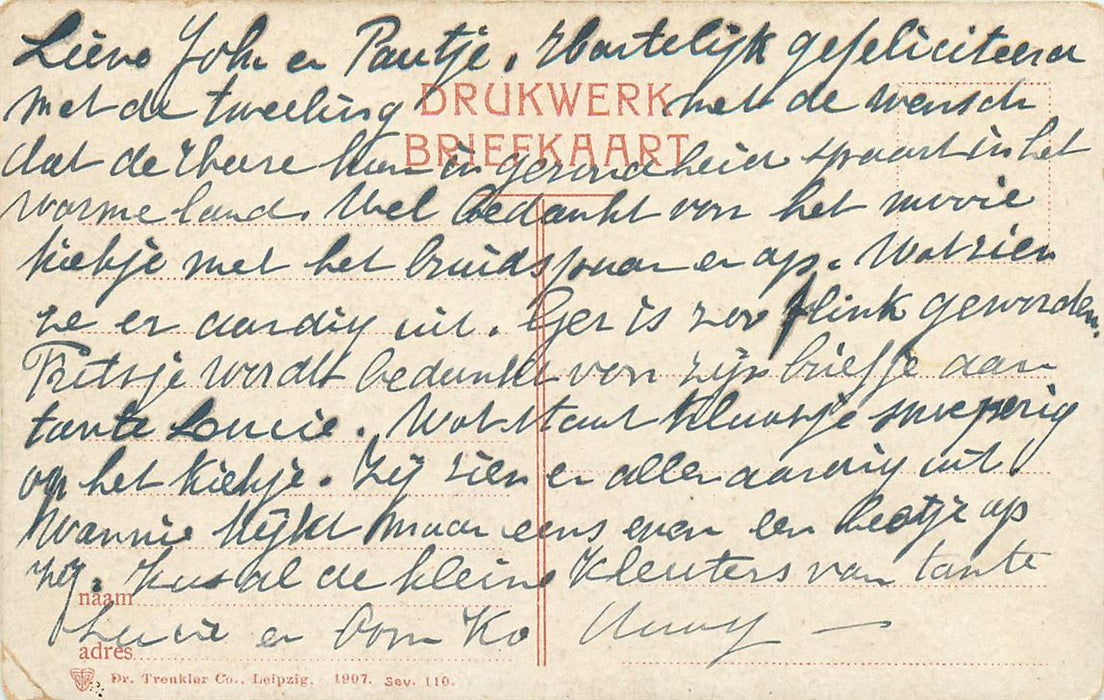 Lieve Joh en Pautje, Hartelijk gefeliciteerd
DRUKWERK
met de tweeling met de wensch
BRIEFKAART
dat de Heere hen in gezondheid spaart in het
warme land. Wel bedankt von het mooie
kiekje met het bruidspaar er op. Wat zien
ze er aardig uit. Ger is zoo flink geworden.
Fritsje wordt bedankt von zijn briefje aan
tante Lucie. Wat staat Klaasje
op het kiekje. Zij zien er aller aardig uit!
Wannie kijkt maar eens even een beetje op
zij. Kus al de kleine Kleuters van tante
naam
Lucie en Oom Ko
adres
Dr. Trenkler Co., Leipzig. 1907. Sev. 110.